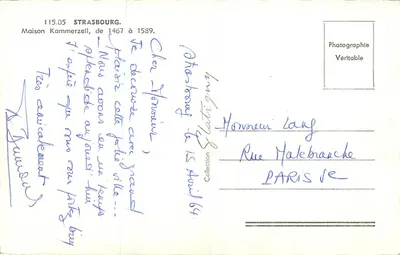 115.05 STRASBOURG.
Maison Kammerzell, de 1467 à 1589.
Photographie
Véritable
Strasbourg le 15 Avril 64
Cher Monsieur,
Je découvre avec grand
plaisir cette jolie ville...
Nous avons eu un temps
splendide aujourd'hui
J'espère que vous vous portez bien
Très amicalement
Monsieur Lang
Rue Malebranche
PARIS Ve